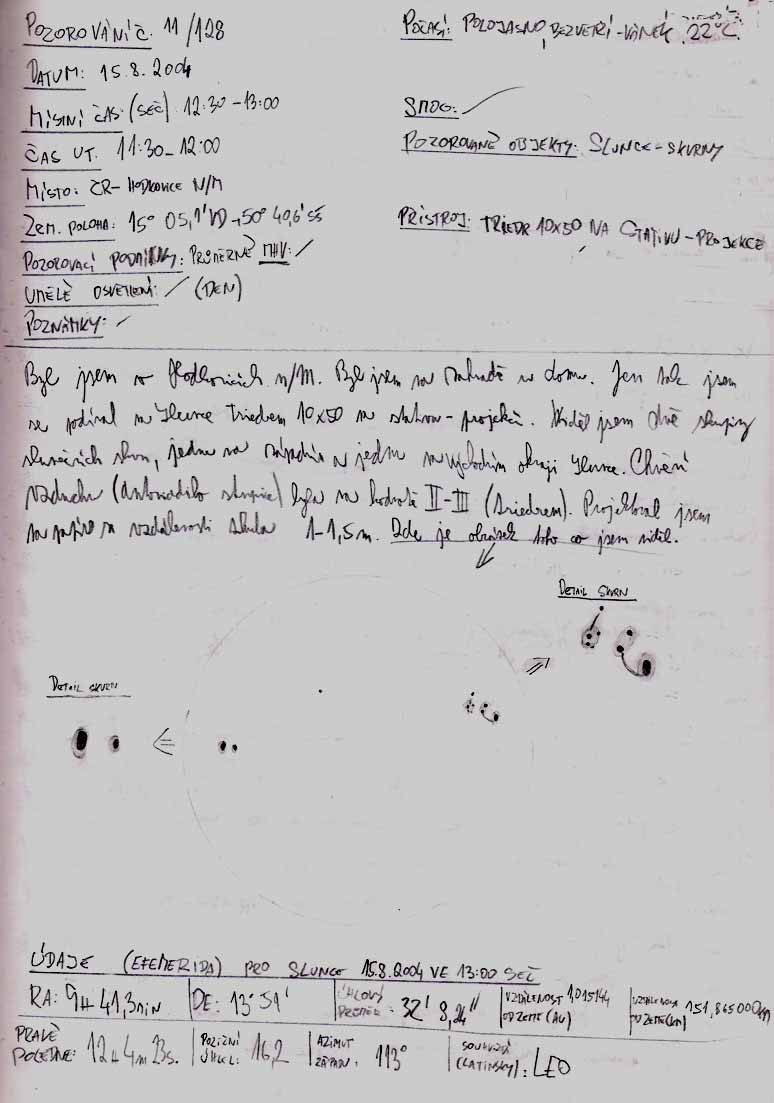 POZOROVÁNÍ Č. 11/128
POČASÍ: POLOJASNO, BEZVĚTŘÍ-VÁNEK, 22°C
DATUM: 15.8.2004
MÍSTNÍ ČAS: (SEČ) 12:30-13:00
SMOG:
ČAS UT: 11:30-12:00
POZOROVANÉ OBJEKTY: SLUNCE-SKVRNY
MÍSTO: ČR- HODKOVICE N/M
ZEM. POLOHA: 15° 05,1' VD, 50° 40,6' SŠ
PŘÍSTROJ: TRIEDR 10X50 NA STATIVU-PROJEKCE
POZOROVACÍ PODMÍNKY: PRŮMĚRNÉ MHV: /
UMĚLÉ OSVĚTLENÍ: / (DEN)
POZNÁMKY: /
Byl jsem v Hodkovicích n/M. Byl jsem na zahradě u domu. Jen tak jsem
se podíval na Slunce triedrem 10x50 na stativu-projekcí. Viděl jsem dvě skupiny
slunečních skvrn, jednu na západním a jednu na východním okraji Slunce. Chvění
vzduchu (Antoniadiho stupnice) bylo na hodnotě II-III (triedrem). Projektoval jsem
na papír na vzdálenosti zhruba 1-1,5m. Zde je obrázek toho co jsem viděl.
DETAIL SKVRN
DETAIL SKVRN
ÚDAJE (EFEMERIDA) PRO SLUNCE 15.8.2004 VE 13:00 SEČ
RA: 9H 41,3min DE: 13° 51' ÚHLOVÝ PRŮMĚR: 32' 8,24'' VZDÁLENOST OD ZEMĚ (AU) 1,015144 VZDÁLENOST OD ZEMĚ (KM) 151,865000km
PRAVÉ POLEDNE: 12H 4m 23s. POZIČNÍ ÚHEL: 16,2 AZIMUT ZÁPADU: 113° SOUHVĚZDÍ (LATINSKY): LEO